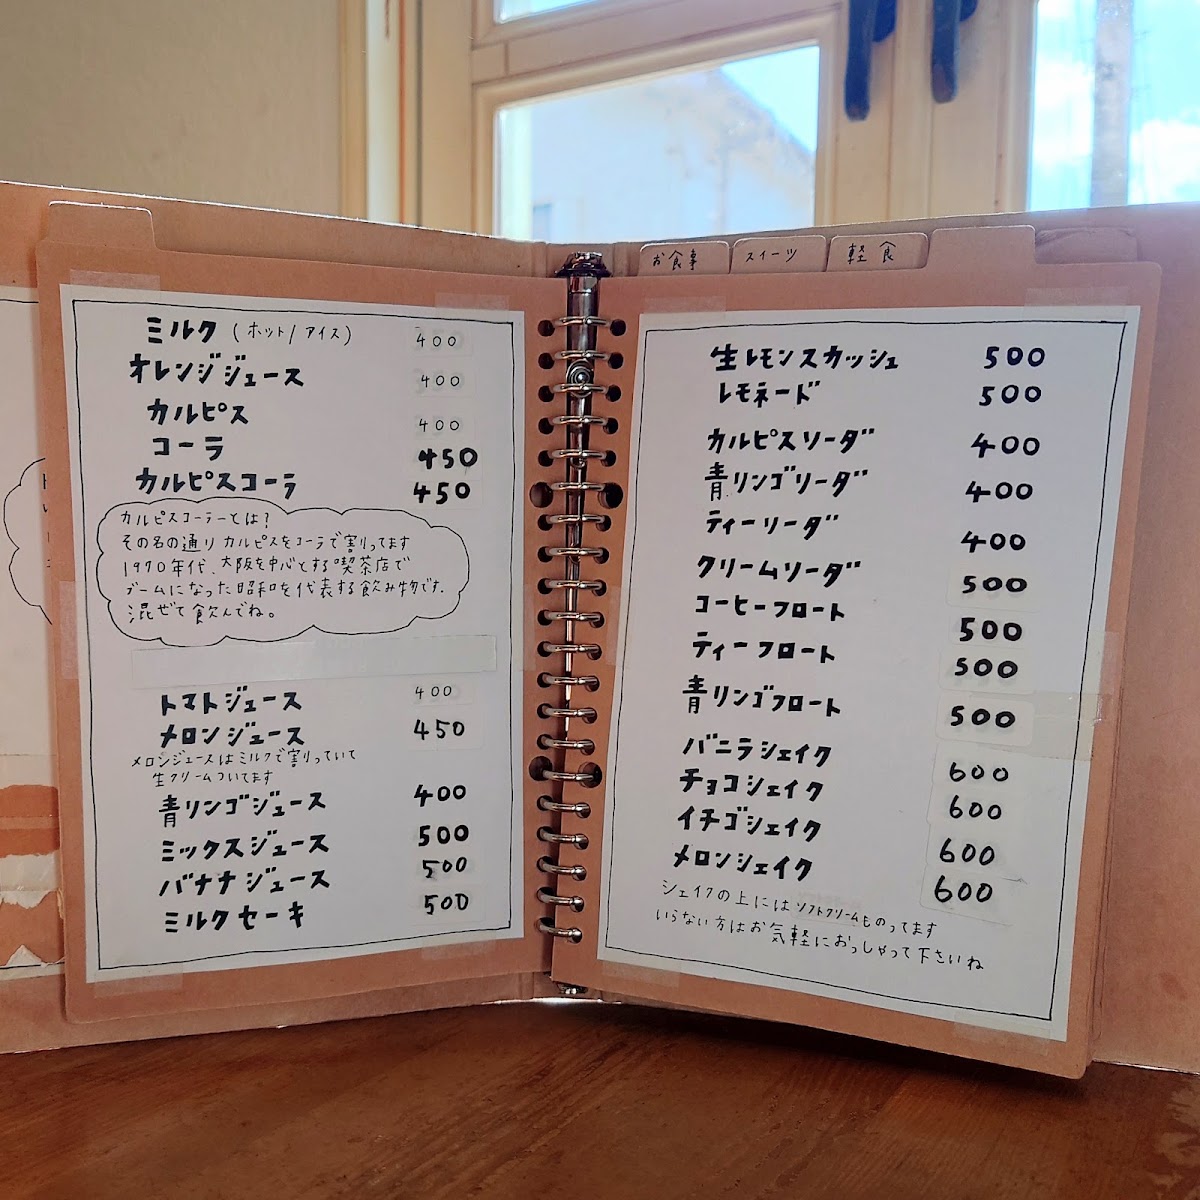 お食事
スイーツ
軽食
ミルク (ホット/アイス) 400
オレンジジュース 400
カルピス 400
コーラ 450
カルピスコーラ 450
カルピスコーラーとは?
その名の通りカルピスをコーラで割ってます
1970年代、大阪を中心とする喫茶店で
ブームになった昭和を代表する飲み物です.
混ぜて飲んでね。
トマトジュース 400
メロンジュース 450
メロンジュースはミルクで割っていて
生クリームついてます
青リンゴジュース 400
ミックスジュース 500
バナナジュース 500
ミルクセーキ 500
生レモンスカッシュ 500
レモネード 500
カルピスソーダ 400
青リンゴソーダ 400
ティーソーダ 400
クリームソーダ 500
コーヒーフロート 500
ティーフロート 500
青リンゴフロート 500
バニラシェイク 600
チョコシェイク 600
イチゴシェイク 600
メロンシェイク 600
シェイクの上にはソフトクリームものってます
いらない方はお気軽におっしゃって下さいね